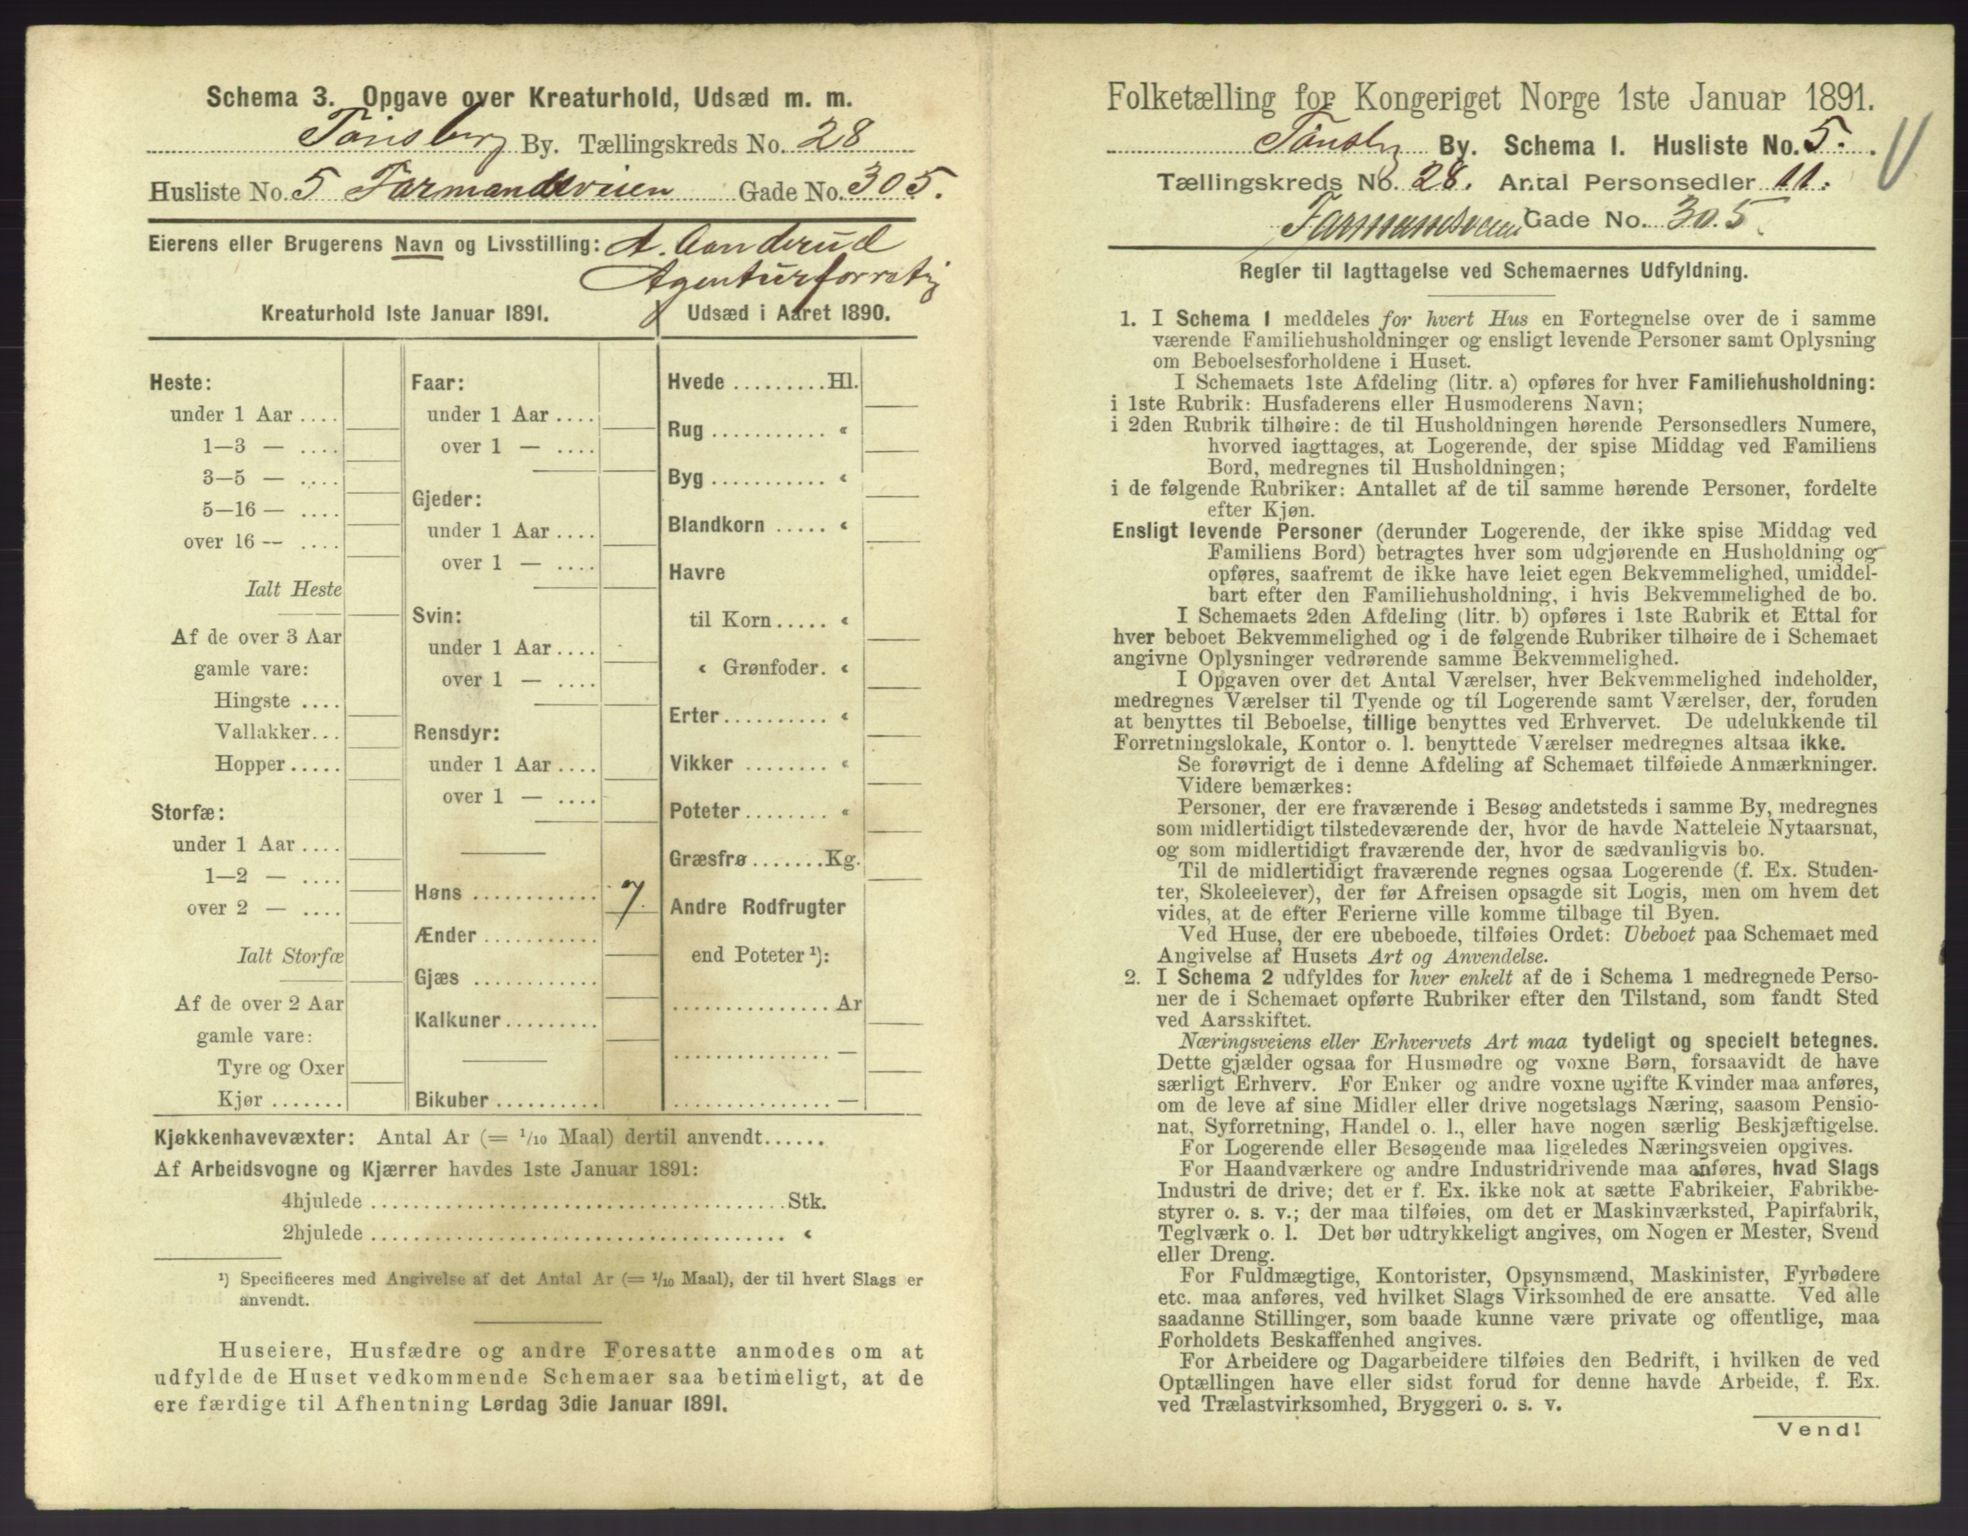 Schema 3. Opgave over Kreaturhold, Udsæd m. m.
Tönsberg By. Tællingskreds No. 28
Husliste No. 5 Farmandsveien Gade No. 305.
Eierens eller Brugerens Navn og Livsstilling: A. Aanderud
Agenturforretng
Kreaturhold 1ste Januar 1891.
Heste:
under 1 Aar ....
1—3 — ....
3—5 — ....
5—16 — ....
over 16 — ....
Ialt Heste
Af de over 3 Aar
gamle vare:
Hingste ....
Vallakker...
Hopper.....
Storfæ:
under 1 Aar ....
1—2 — ....
over 2 — ....
Ialt Storfæ
Af de over 2 Aar
gamle vare:
Tyre og Oxer
Kjør .......
Faar:
under 1 Aar ....
over 1 — ....
Gjeder:
under 1 Aar ....
over 1 — ....
Svin:
under 1 Aar ....
over 1 — ....
Rensdyr:
under 1 Aar ....
over 1 — ....
Høns ............ 7.
Ænder ...........
Gjæs ............
Kalkuner.........
Bikuber ..........
Udsæd i Aaret 1890.
Hvede .........Hl.
Rug ........... «
Byg ........... «
Blandkorn ..... «
Havre
til Korn..... «
« Grønfoder. «
Erter.......... «
Vikker ........ «
Poteter........ «
Græsfrø .......Kg.
Andre Rodfrugter
end Poteter ¹):
...............Ar
............... —
............... —
Kjøkkenhavevæxter: Antal Ar (= 1/10 Maal) dertil anvendt......
Af Arbeidsvogne og Kjærrer havdes 1ste Januar 1891:
4hjulede .......................................Stk.
2hjulede ....................................... «
¹) Specificeres med Angivelse af det Antal Ar (= 1/10 Maal), der til hvert Slags er
anvendt.
Huseiere, Husfædre og andre Foresatte anmodes om at
udfylde de Huset vedkommende Schemaer saa betimeligt, at de
ere færdige til Afhentning Lørdag 3die Januar 1891.
Folketælling for Kongeriget Norge 1ste Januar 1891.
Tönsbg By. Schema I. Husliste No. 5.
Tællingskreds No. 28. Antal Personsedler 11.
Farmandsveien Gade No. 305.
Regler til Iagttagelse ved Schemaernes Udfyldning.
1. I Schema 1 meddeles for hvert Hus en Fortegnelse over de i samme
værende Familiehusholdninger og ensligt levende Personer samt Oplysning
om Beboelsesforholdene i Huset.
I Schemaets 1ste Afdeling (litr. a) opføres for hver Familiehusholdning:
i 1ste Rubrik: Husfaderens eller Husmoderens Navn;
i 2den Rubrik tilhøire: de til Husholdningen hørende Personsedlers Numere,
hvorved iagttages, at Logerende, der spise Middag ved Familiens
Bord, medregnes til Husholdningen;
i de følgende Rubriker: Antallet af de til samme hørende Personer, fordelte
efter Kjøn.
Ensligt levende Personer (derunder Logerende, der ikke spise Middag ved
Familiens Bord) betragtes hver som udgjørende en Husholdning og
opføres, saafremt de ikke have leiet egen Bekvemmelighed, umiddel-
bart efter den Familiehusholdning, i hvis Bekvemmelighed de bo.
I Schemaets 2den Afdeling (litr. b) opføres i 1ste Rubrik et Ettal for
hver beboet Bekvemmelighed og i de følgende Rubriker tilhøire de i Schemaet
angivne Oplysninger vedrørende samme Bekvemmelighed.
I Opgaven over det Antal Værelser, hver Bekvemmelighed indeholder,
medregnes Værelser til Tyende og til Logerende samt Værelser, der, foruden
at benyttes til Beboelse, tillige benyttes ved Erhvervet. De udelukkende til
Forretningslokale, Kontor o. l. benyttede Værelser medregnes altsaa ikke.
Se forøvrigt de i denne Afdeling af Schemaet tilføiede Anmærkninger.
Videre bemærkes:
Personer, der ere fraværende i Besøg andetsteds i samme By, medregnes
som midlertidigt tilstedeværende der, hvor de havde Natteleie Nytaarsnat,
og som midlertidigt fraværende der, hvor de sædvanligvis bo.
Til de midlertidigt fraværende regnes ogsaa Logerende (f. Ex. Studen-
ter, Skoleelever), der før Afreisen opsagde sit Logis, men om hvem det
vides, at de efter Ferierne ville komme tilbage til Byen.
Ved Huse, der ere ubeboede, tilføies Ordet: Ubeboet paa Schemaet med
Angivelse af Husets Art og Anvendelse.
2. I Schema 2 udfyldes for hver enkelt af de i Schema 1 medregnede Perso-
ner de i Schemaet opførte Rubriker efter den Tilstand, som fandt Sted
ved Aarsskiftet.
Næringsveiens eller Erhvervets Art maa tydeligt og specielt betegnes.
Dette gjælder ogsaa for Husmødre og voxne Børn, forsaavidt de have
særligt Erhverv. For Enker og andre voxne ugifte Kvinder maa anføres,
om de leve af sine Midler eller drive nogetslags Næring, saasom Pensio-
nat, Syforretning, Handel o. l., eller have nogen særlig Beskjæftigelse.
For Logerende eller Besøgende maa ligeledes Næringsveien opgives.
For Haandværkere og andre Industridrivende maa anføres, hvad Slags
Industri de drive; det er f. Ex. ikke nok at sætte Fabrikeier, Fabrikbe-
styrer o. s. v.; der maa tilføies, om det er Maskinværksted, Papirfabrik,
Teglværk o. l. Det bør udtrykkeligt angives, om Nogen er Mester, Svend
eller Dreng.
For Fuldmægtige, Kontorister, Opsynsmænd, Maskinister, Fyrbødere
etc. maa anføres, ved hvilket Slags Virksomhed de ere ansatte. Ved alle
saadanne Stillinger, som baade kunne være private og offentlige, maa
Forholdets Beskaffenhed angives.
For Arbeidere og Dagarbeidere tilføies den Bedrift, i hvilken de ved
Optællingen have eller sidst forud for denne havde Arbeide, f. Ex.
ved Trælastvirksomhed, Bryggeri o. s. v.
Vend!